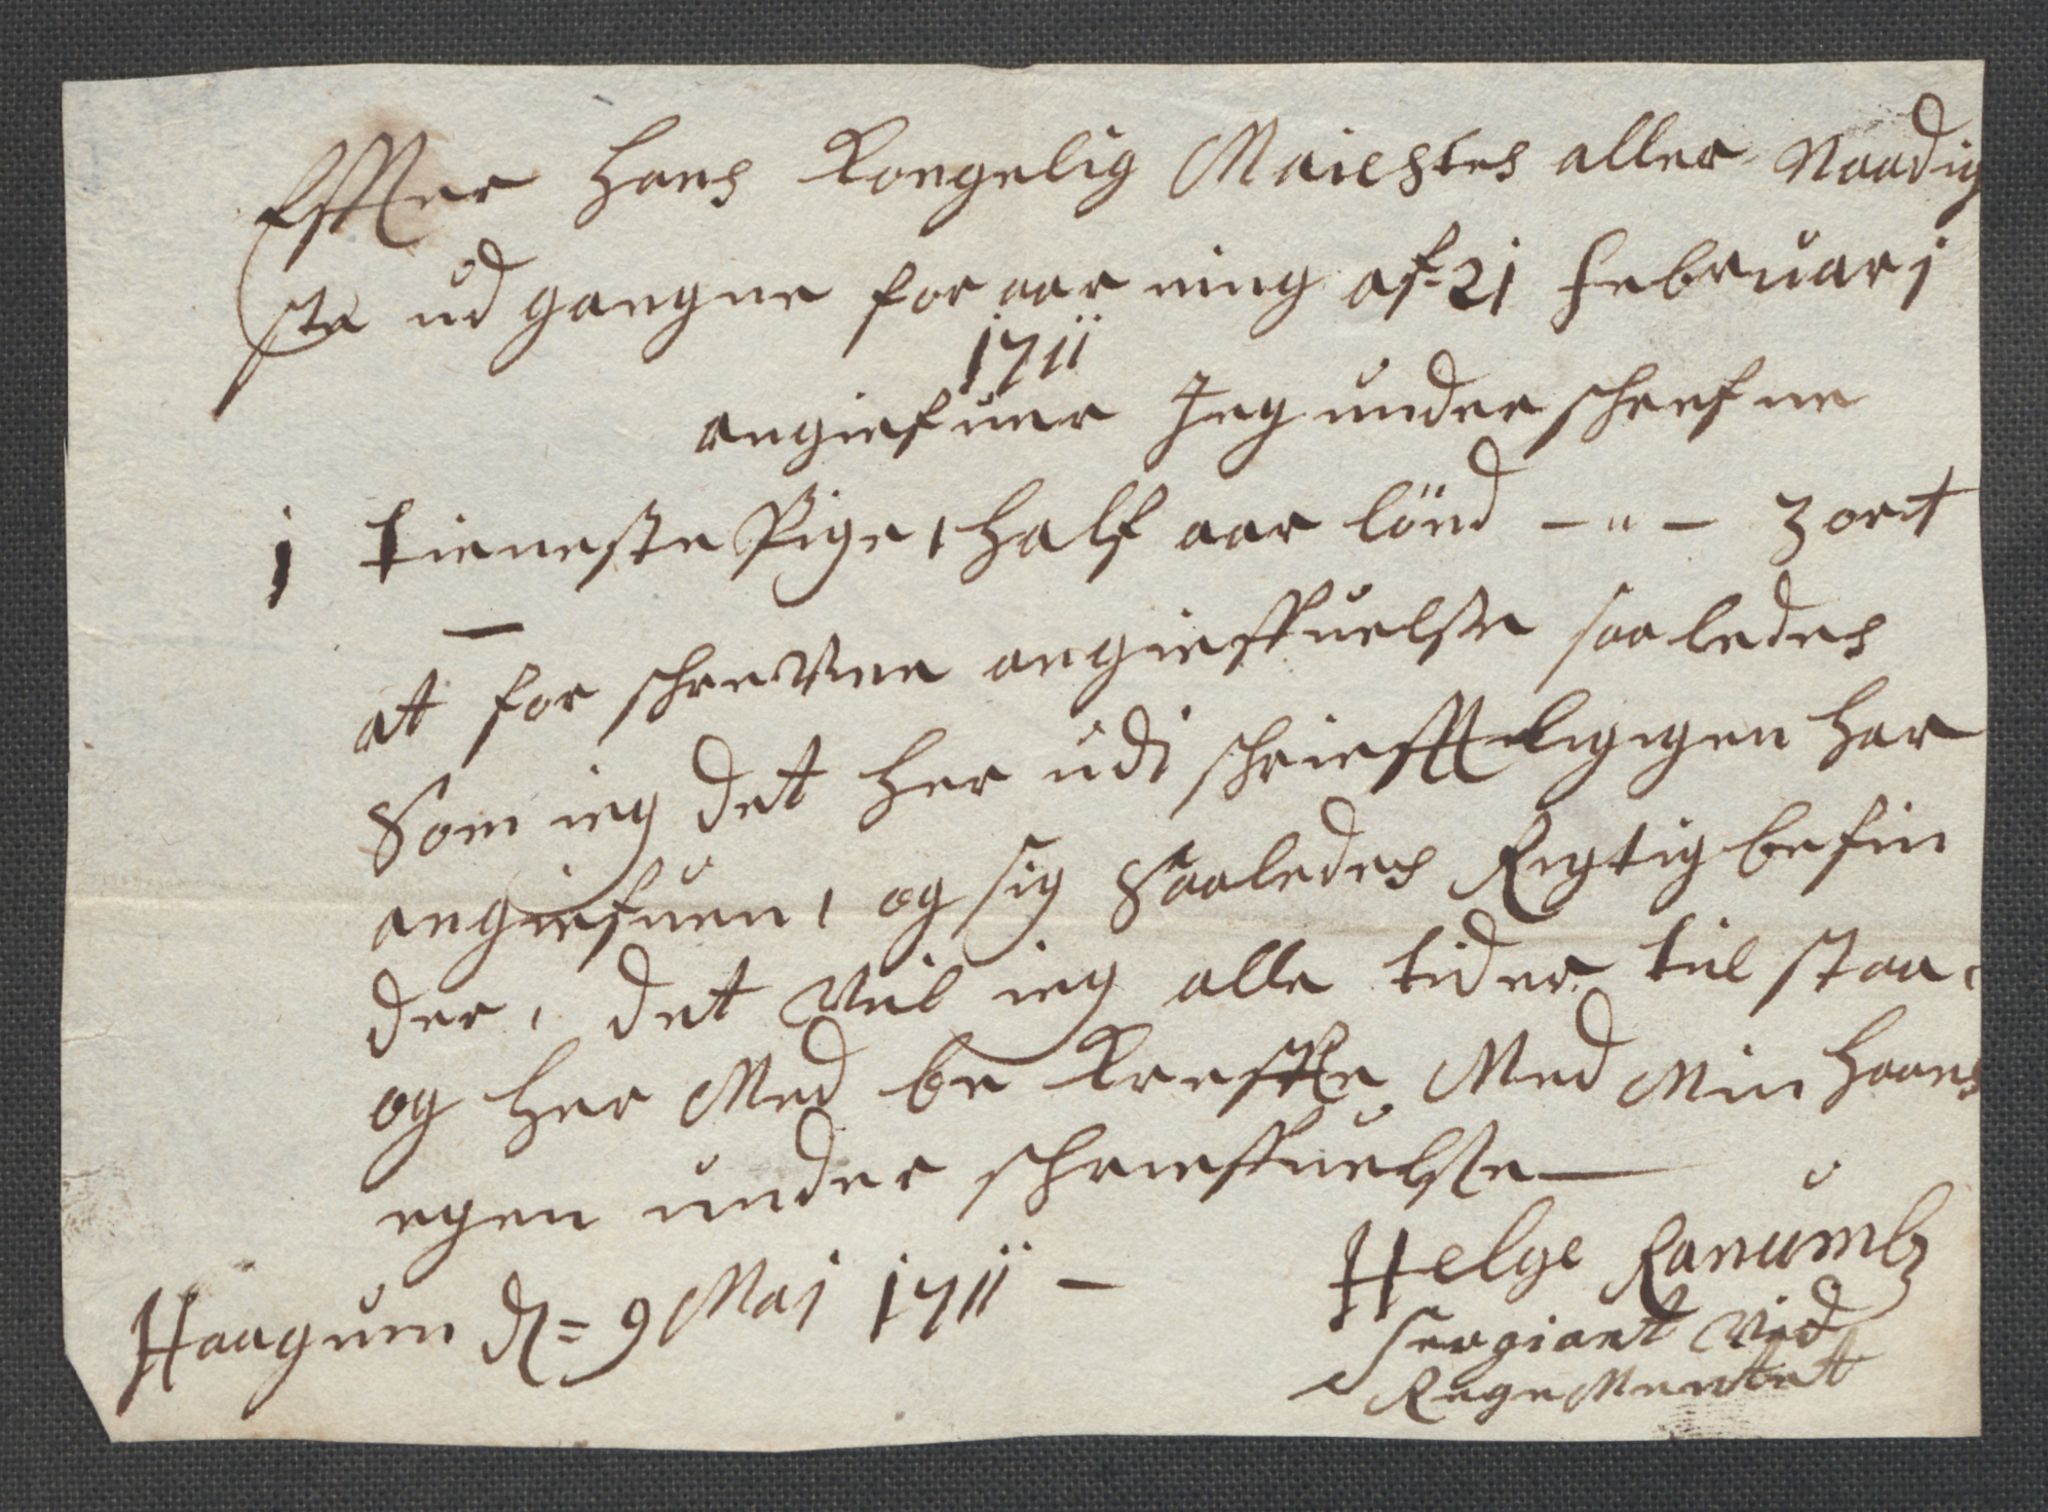 Effter Hans Kongelig Maiestes aller Naadig
ste ud gangne for aar ning af 21 Februarj
1711
angiefuer Jeg underschrefne
1 tieneste Pige, half aar lönd — " — 3 ort
at for schrefne angieffuelse saa ledes
Som ieg det her udi schriefftelig igen har
angiefuen, og sig Saaledes Rigtig befin
der, det Vil ieg alle tider til staa,
og her Med be Kreffte Med Min Haans
egen under schrieffuelse —
Haagum d = 9 Maj 1711 —
Helge Ranumb
Sergiant Ved
RegeMentet